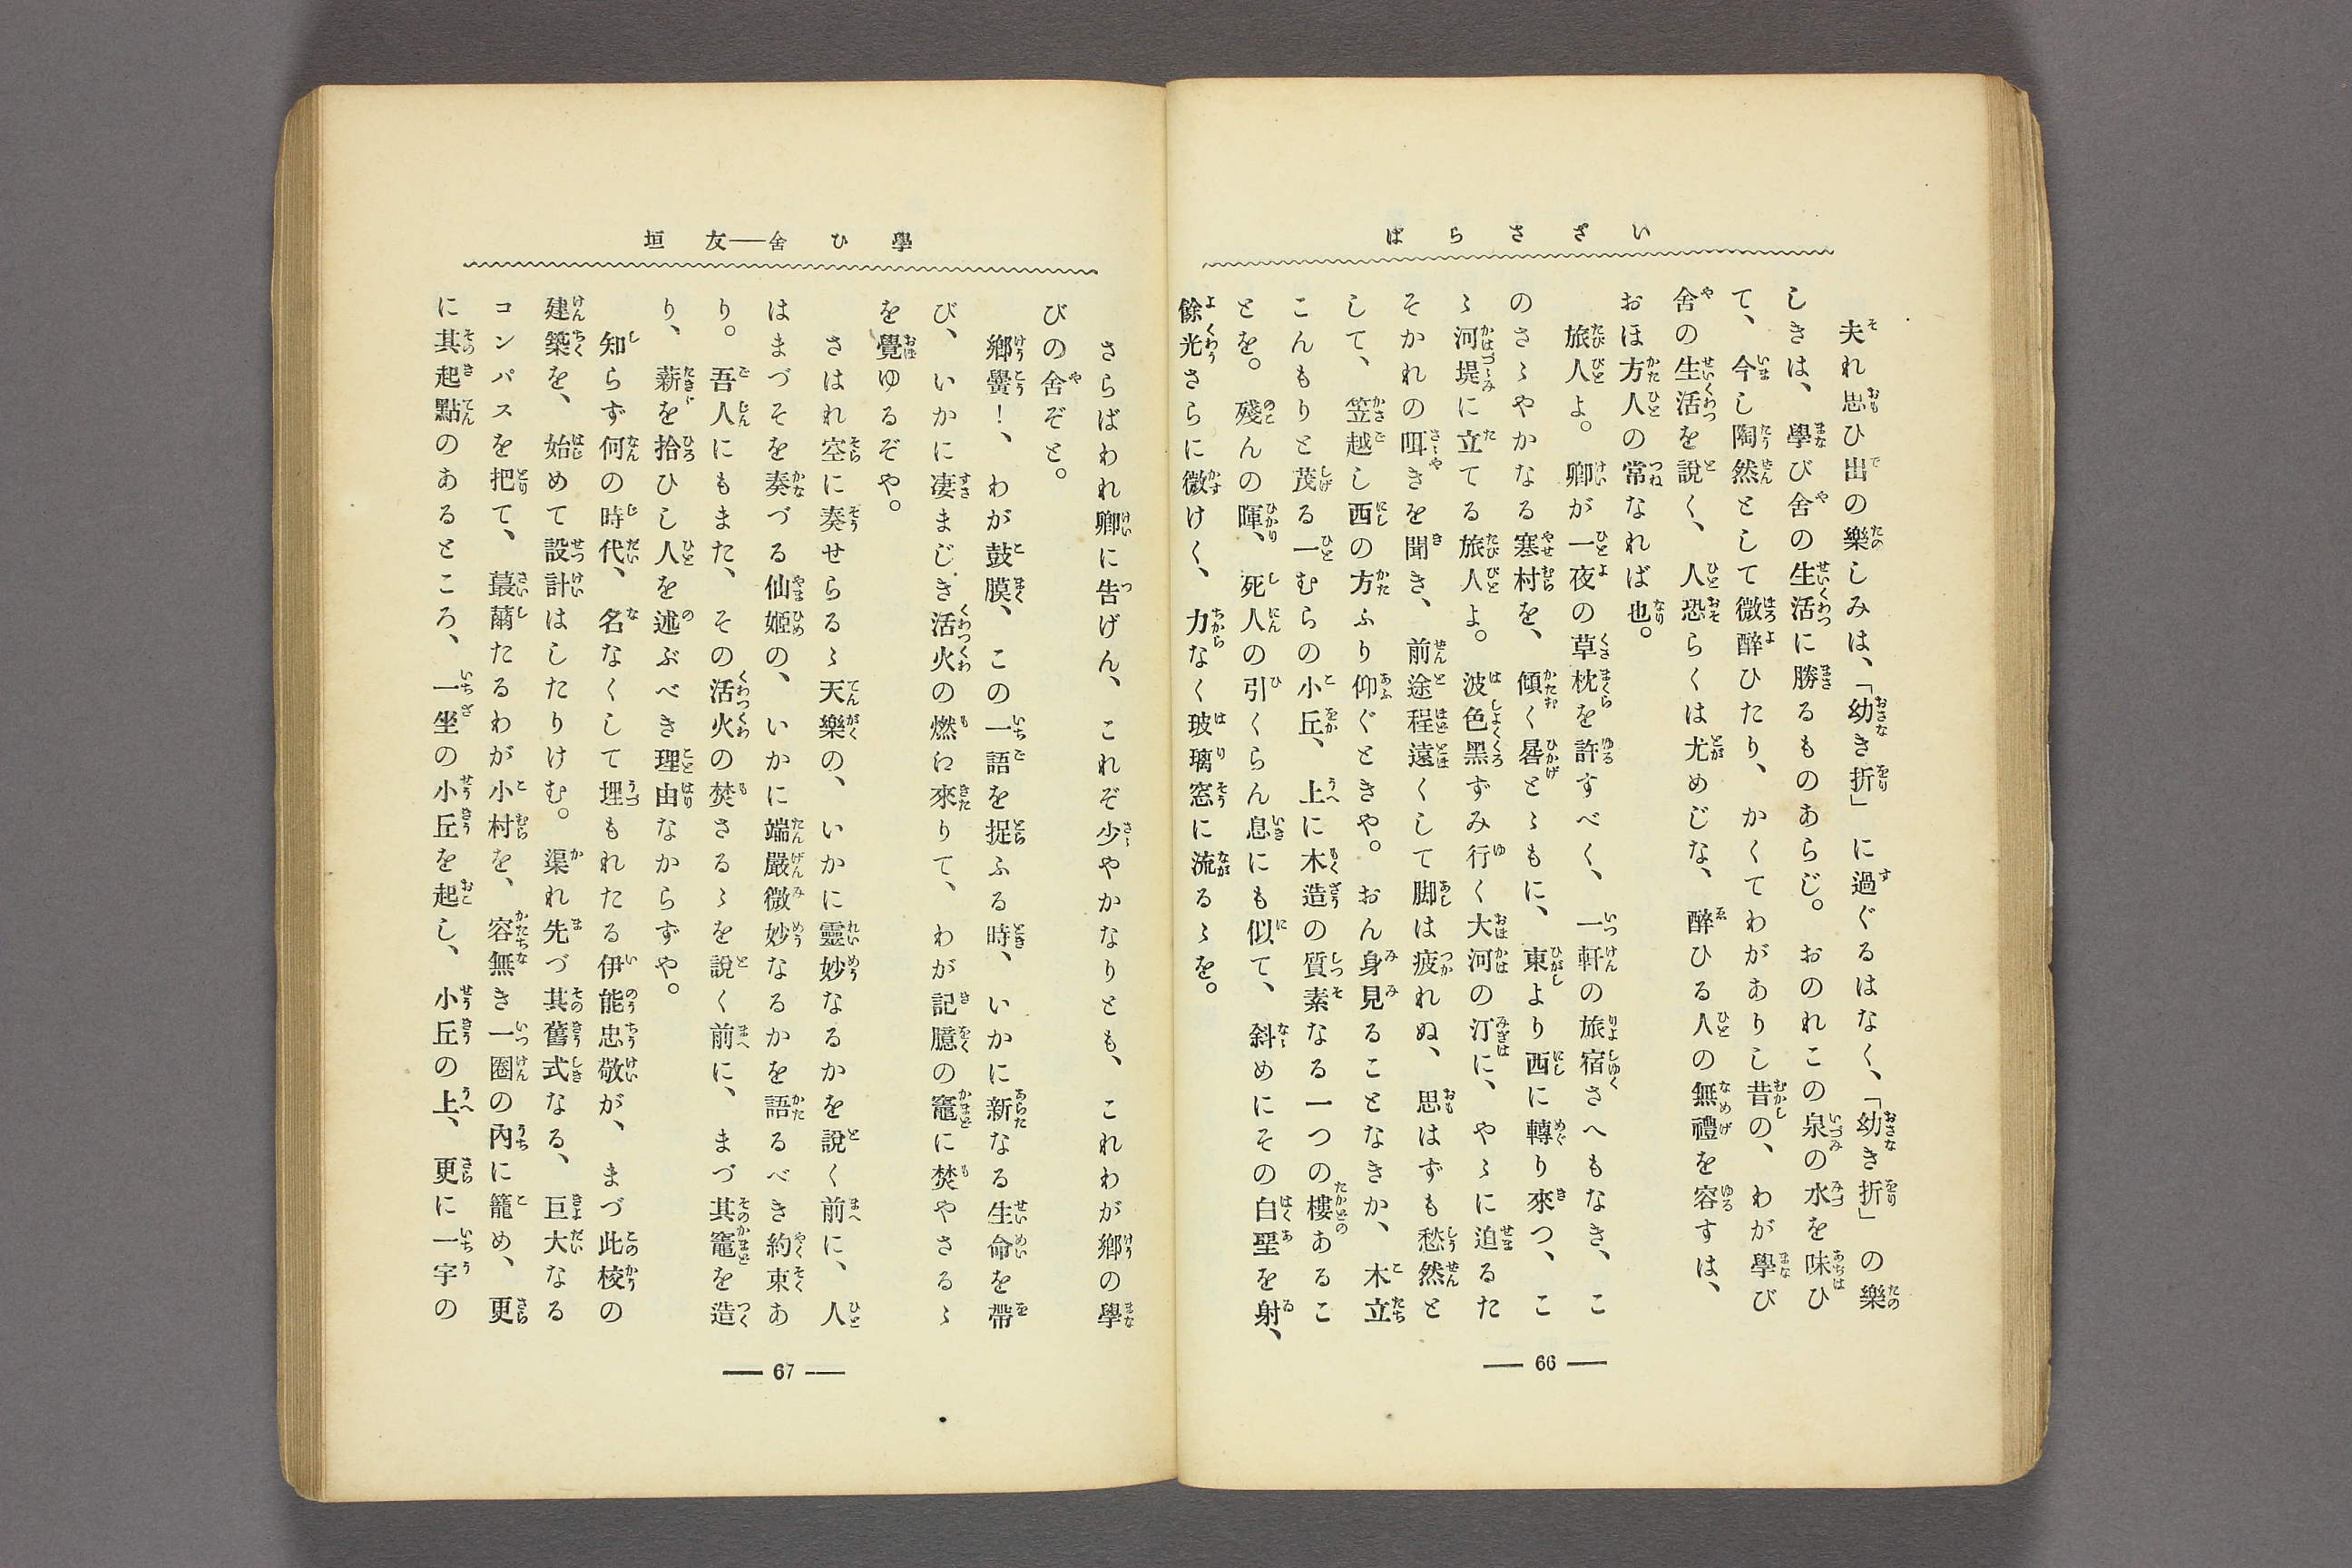 いざさらば
夫れ思ひ出の樂しみは、「幼き折」に過ぐるはなく、「幼き折」の樂
しきは、學び舍の生活に勝るものあらじ。おのれこの泉の水を味ひ
て、今し陶然として微醉ひたり、かくてわがありし昔の、わが學び
舍の生活を說く、人恐らくは尤めじな、醉ひる人の無禮を容すは、
おほ方人の常なれば也。
旅人よ。卿が一夜の草枕を許すべく、一軒の旅宿さへもなき、こ
のさゝやかなる寒村を、傾く晷とゝもに、東より西に轉り來つ、こ
ゝ河堤に立てる旅人よ。波色黑ずみ行く大河の汀に、やゝに迫るた
そかれの咡きを聞き、前途程遠くして脚は疲れぬ、思はずも愁然と
して、笠越し西の方ふり仰ぐときや。おん身見ることなきか、木立
こんもりと茂る一むらの小丘、上に木造の質素なる一つの樓あるこ
とを。殘んの暉、死人の引くらん息にも似て、斜めにその白堊を射、
餘光さらに微けく、力なく玻璃窓に流るゝを。
— 66 —
學ひ舍——友垣
さらばわれ卿に告げん、これぞ少やかなりとも、これわが鄕の學
びの舍ぞと。
鄕黌！、わが鼓膜、この一語を捉ふる時、いかに新なる生命を帶
び、いかに凄まじき活火の燃ね來りて、わが記臆の竈に焚やさるゝ
を覺ゆるぞや。
さはれ空に奏せらるゝ天樂の、いかに靈妙なるかを說く前に、人
はまづそを奏づる仙姬の、いかに端嚴微妙なるかを語るべき約束あ
り。吾人にもまた、その活火の焚さるゝを說く前に、まづ其竈を造
り、薪を拾ひし人を述ぶべき理由なからずや。
知らず何の時代、名なくして埋もれたる伊能忠敬が、まづ此校の
建築を、始めて設計はしたりけむ。渠れ先づ其舊式なる、巨大なる
コンパスを把て、蕞薾たるわが小村を、容無き一圈の內に籠め、更
に其起點のあるところ、一坐の小丘を起し、小丘の上、更に一宇の
— 67 —